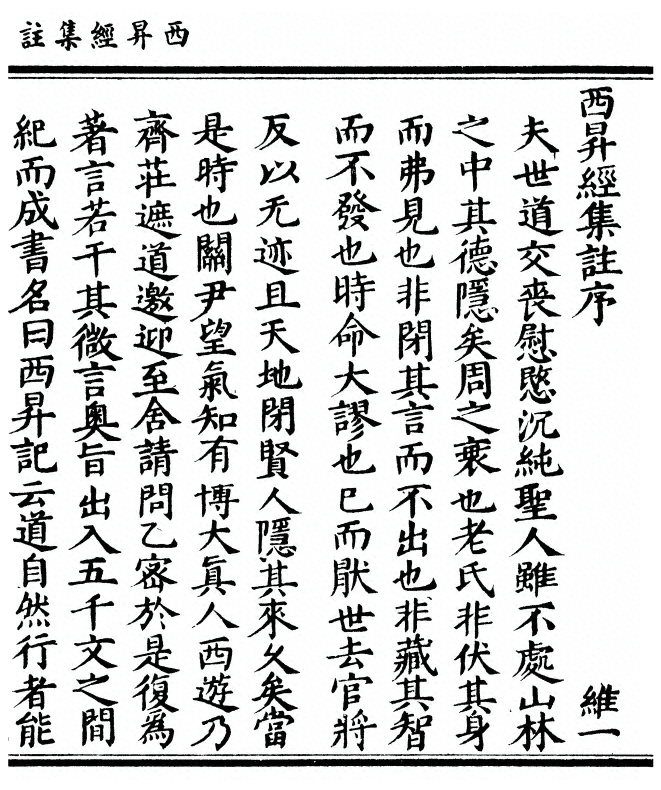 西昇經集註
西昇經集註序 維一
夫世道交喪慰愍沉純聖人雖不處山林
之中其德隱矣周之衰也老氏非伏其身
而弗見也非閉其言而不出也非藏其智
而不發也時命大謬也已而猒世去官將
反以无迹且天地閉賢人隱其來久矣當
是時也關尹望氣知有博大真人西遊乃
齊莊遮道邀迎至舍請問乙宻於是復為
著言若干其微言奧旨出入五千文之間
紀而成書名曰西昇記云道自然行者能